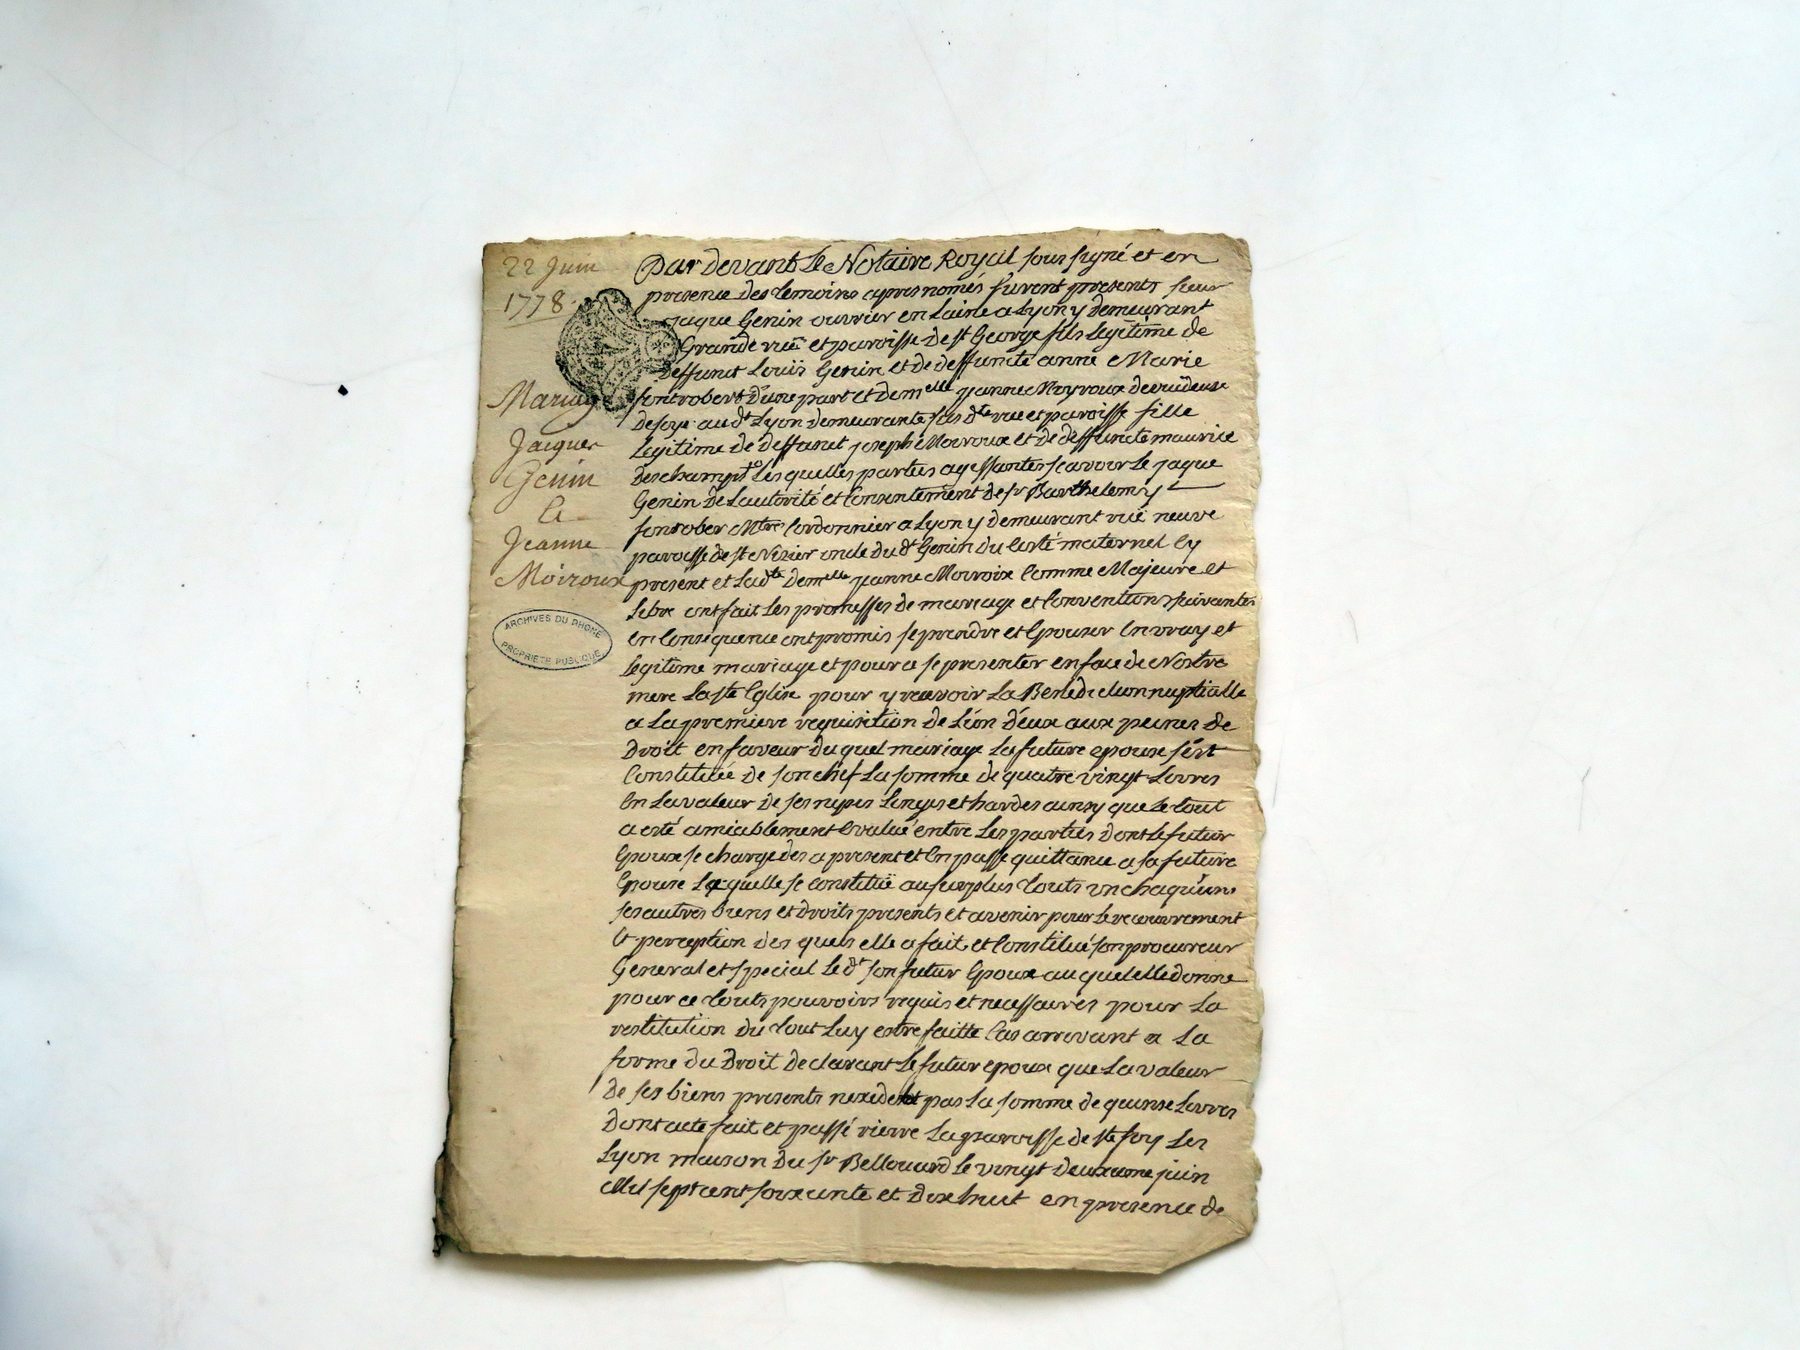 22 Juin
1778.
Mariage
Jacques
Genin
Et
Jeanne
Moiroux
ARCHIVES DU RHONE
PROPRIETE PUBLIQUE
Par devant Le Notaire Royal sous signé et en
presence des temoins apres només furent presents sieur
jaque Genin ouvrier en Laine a Lyon y demeurant
Grande ruë et paroisse de st George fils Legitime de
deffunct Louis Genin et de deffuncte anne Marie
fontrobert d'une part et demelle jeanne Moyroux devideuse
de soye au dt Lyon demeurante sus dte rue et paroisse fille
Legitime de deffunct joseph Moiroux et de deffuncte maurice
deschamps Les quelles parties agissantes scavoir Le jaque
Genin de Lautorité et Consentement de sr Barthelemy
fonrober Mtre Cordonnier a Lyon y demeurant ruë neuve
paroisse de st Nizier oncle du dt Genin du Costé maternel Cy
present et La dte demelle jeanne Moiroix Comme Majeure et
Libre ont fait Les promesses de mariage et Conventions suivantes
En Consequence ont promis se prendre et Epouser En vray et
Legitime mariage et pour ce se presenter en face de Nostre
mere La ste Eglise pour y recevoir La Benediction nuptialle
a La premiere requisition de L'un d'eux aux peines de
Droit en faveur du quel mariage La future epouse s'est
Constituée de son chef La somme de quatre vingt Livres
En La valeur de ses nipes Linges et hardes ainsy que Le tout
a esté amiablement Evalué entre Les parties dont Le futur
Epoux se charge des a present et En passe quittance a sa future
Epouse La quelle se constitüe au surplus touts un chaqu'uns
ses autres biens et droits presents et avenir pour Le recouvrement
Et perception des quels elle a fait et Constitué son procureur
General et special Le dt son futur Epoux au quel elle donne
pour ce touts pouvoirs requis et necessaires pour La
restitution du tout Luy estre faitte Cas arrivant a La
forme du Droit declarant Le futur epoux que La valeur
de ses biens presents nexedent pas La somme de quinse Livres
Dont acte fait et passé riere La paroisse de ste foy Les
Lyon maison du sr Bellouard Le vingt deuxieme juin
Mil sept cent soixante et dix huit en presence de